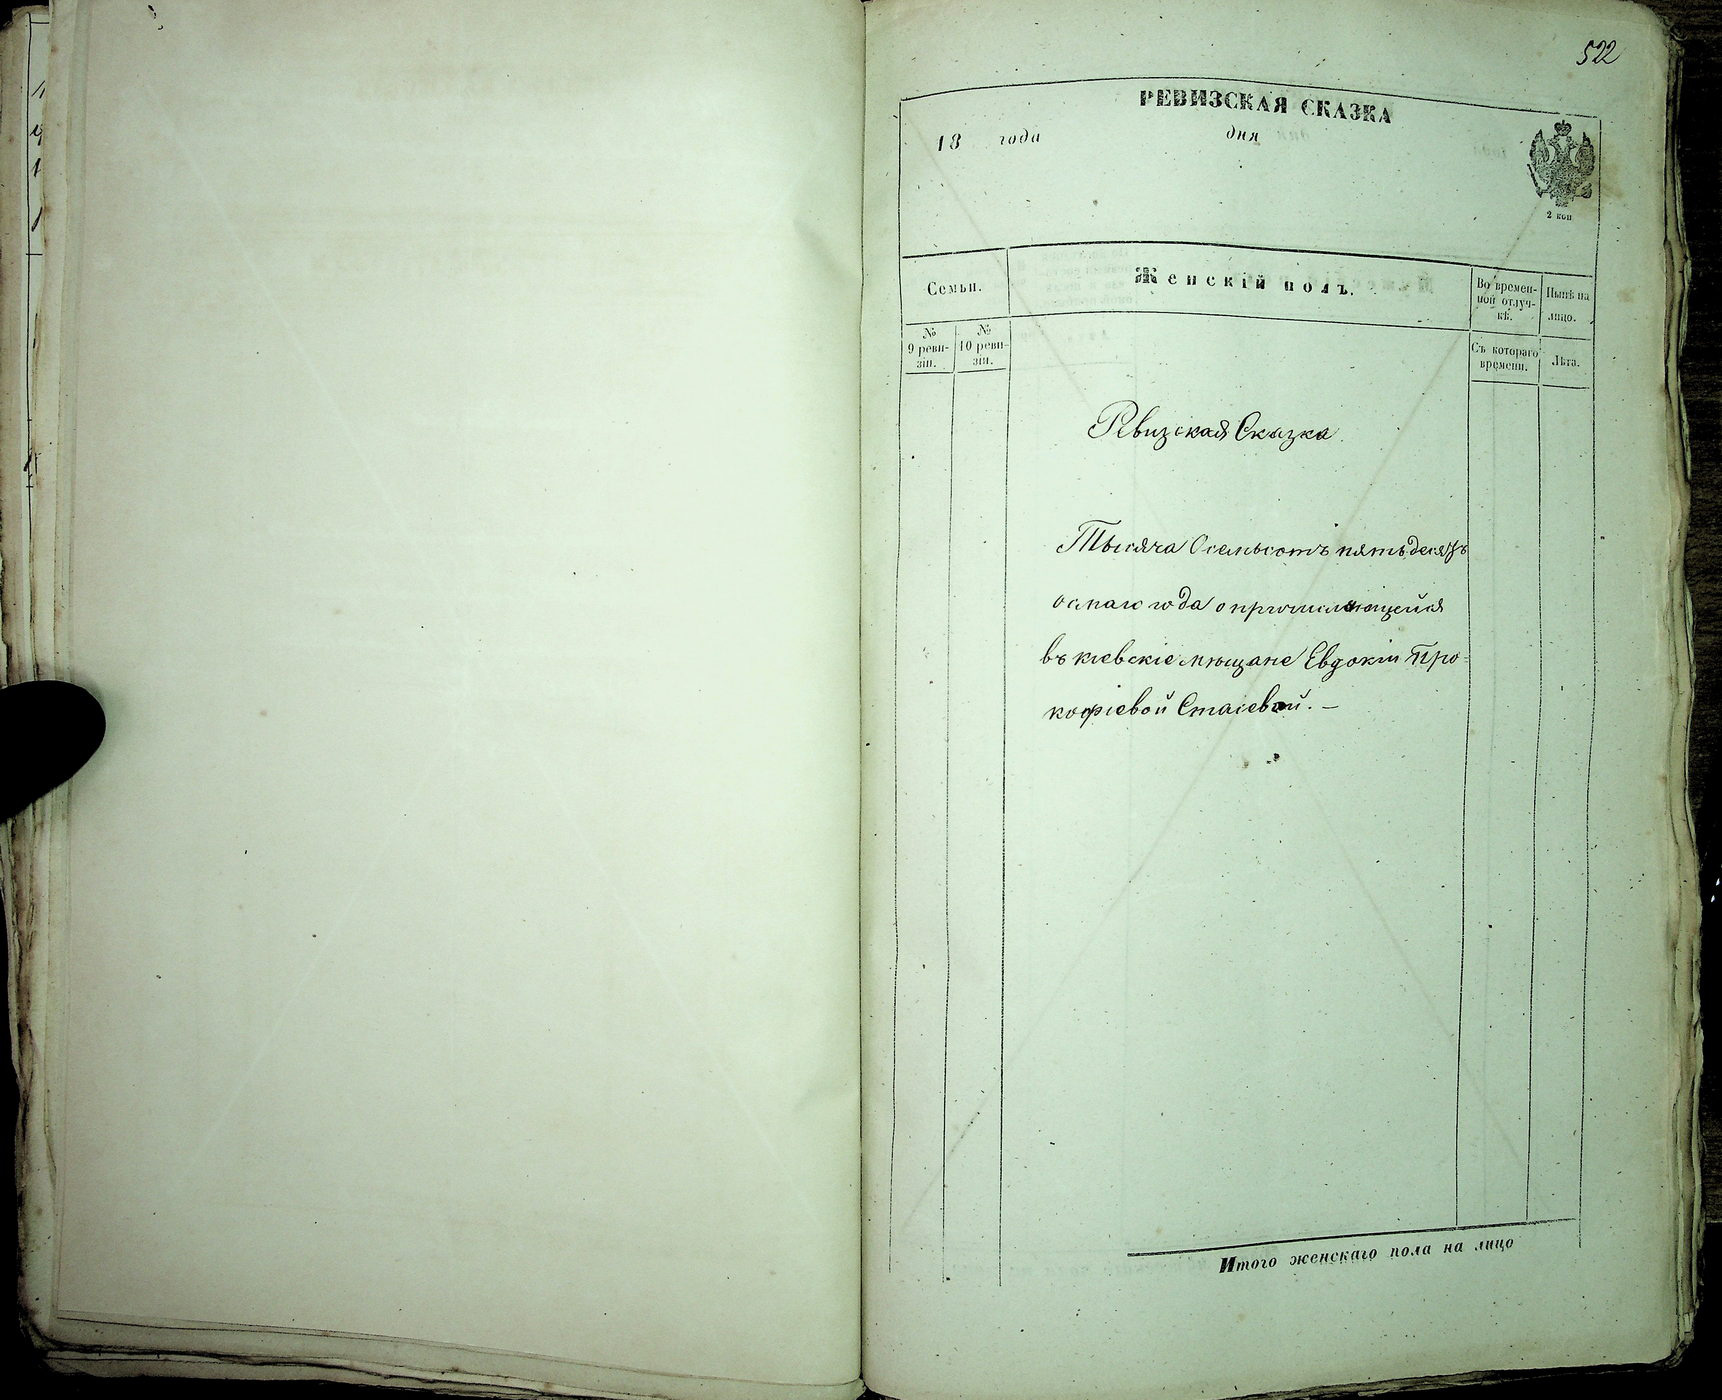 522
РЕВИЗСКАЯ СКАЗКА
18 года дня
2 коп
Семьи.
Женскій полъ.
Во времен-
ной отлуч-
кѣ.
Нынѣ на
лицо.
№
9 реви-
зіи.
№
10 реви-
зіи.
Съ котораго
времени.
Лѣта.
Ревизская Сказка
Тысяча Осемьсотъ пятьдесятъ
осмаго года о причисляющейся
въ кіевскіе мѣщане Евдокіи Про-
кофіевой Стаіевой. —
Итого женскаго пола на лицо